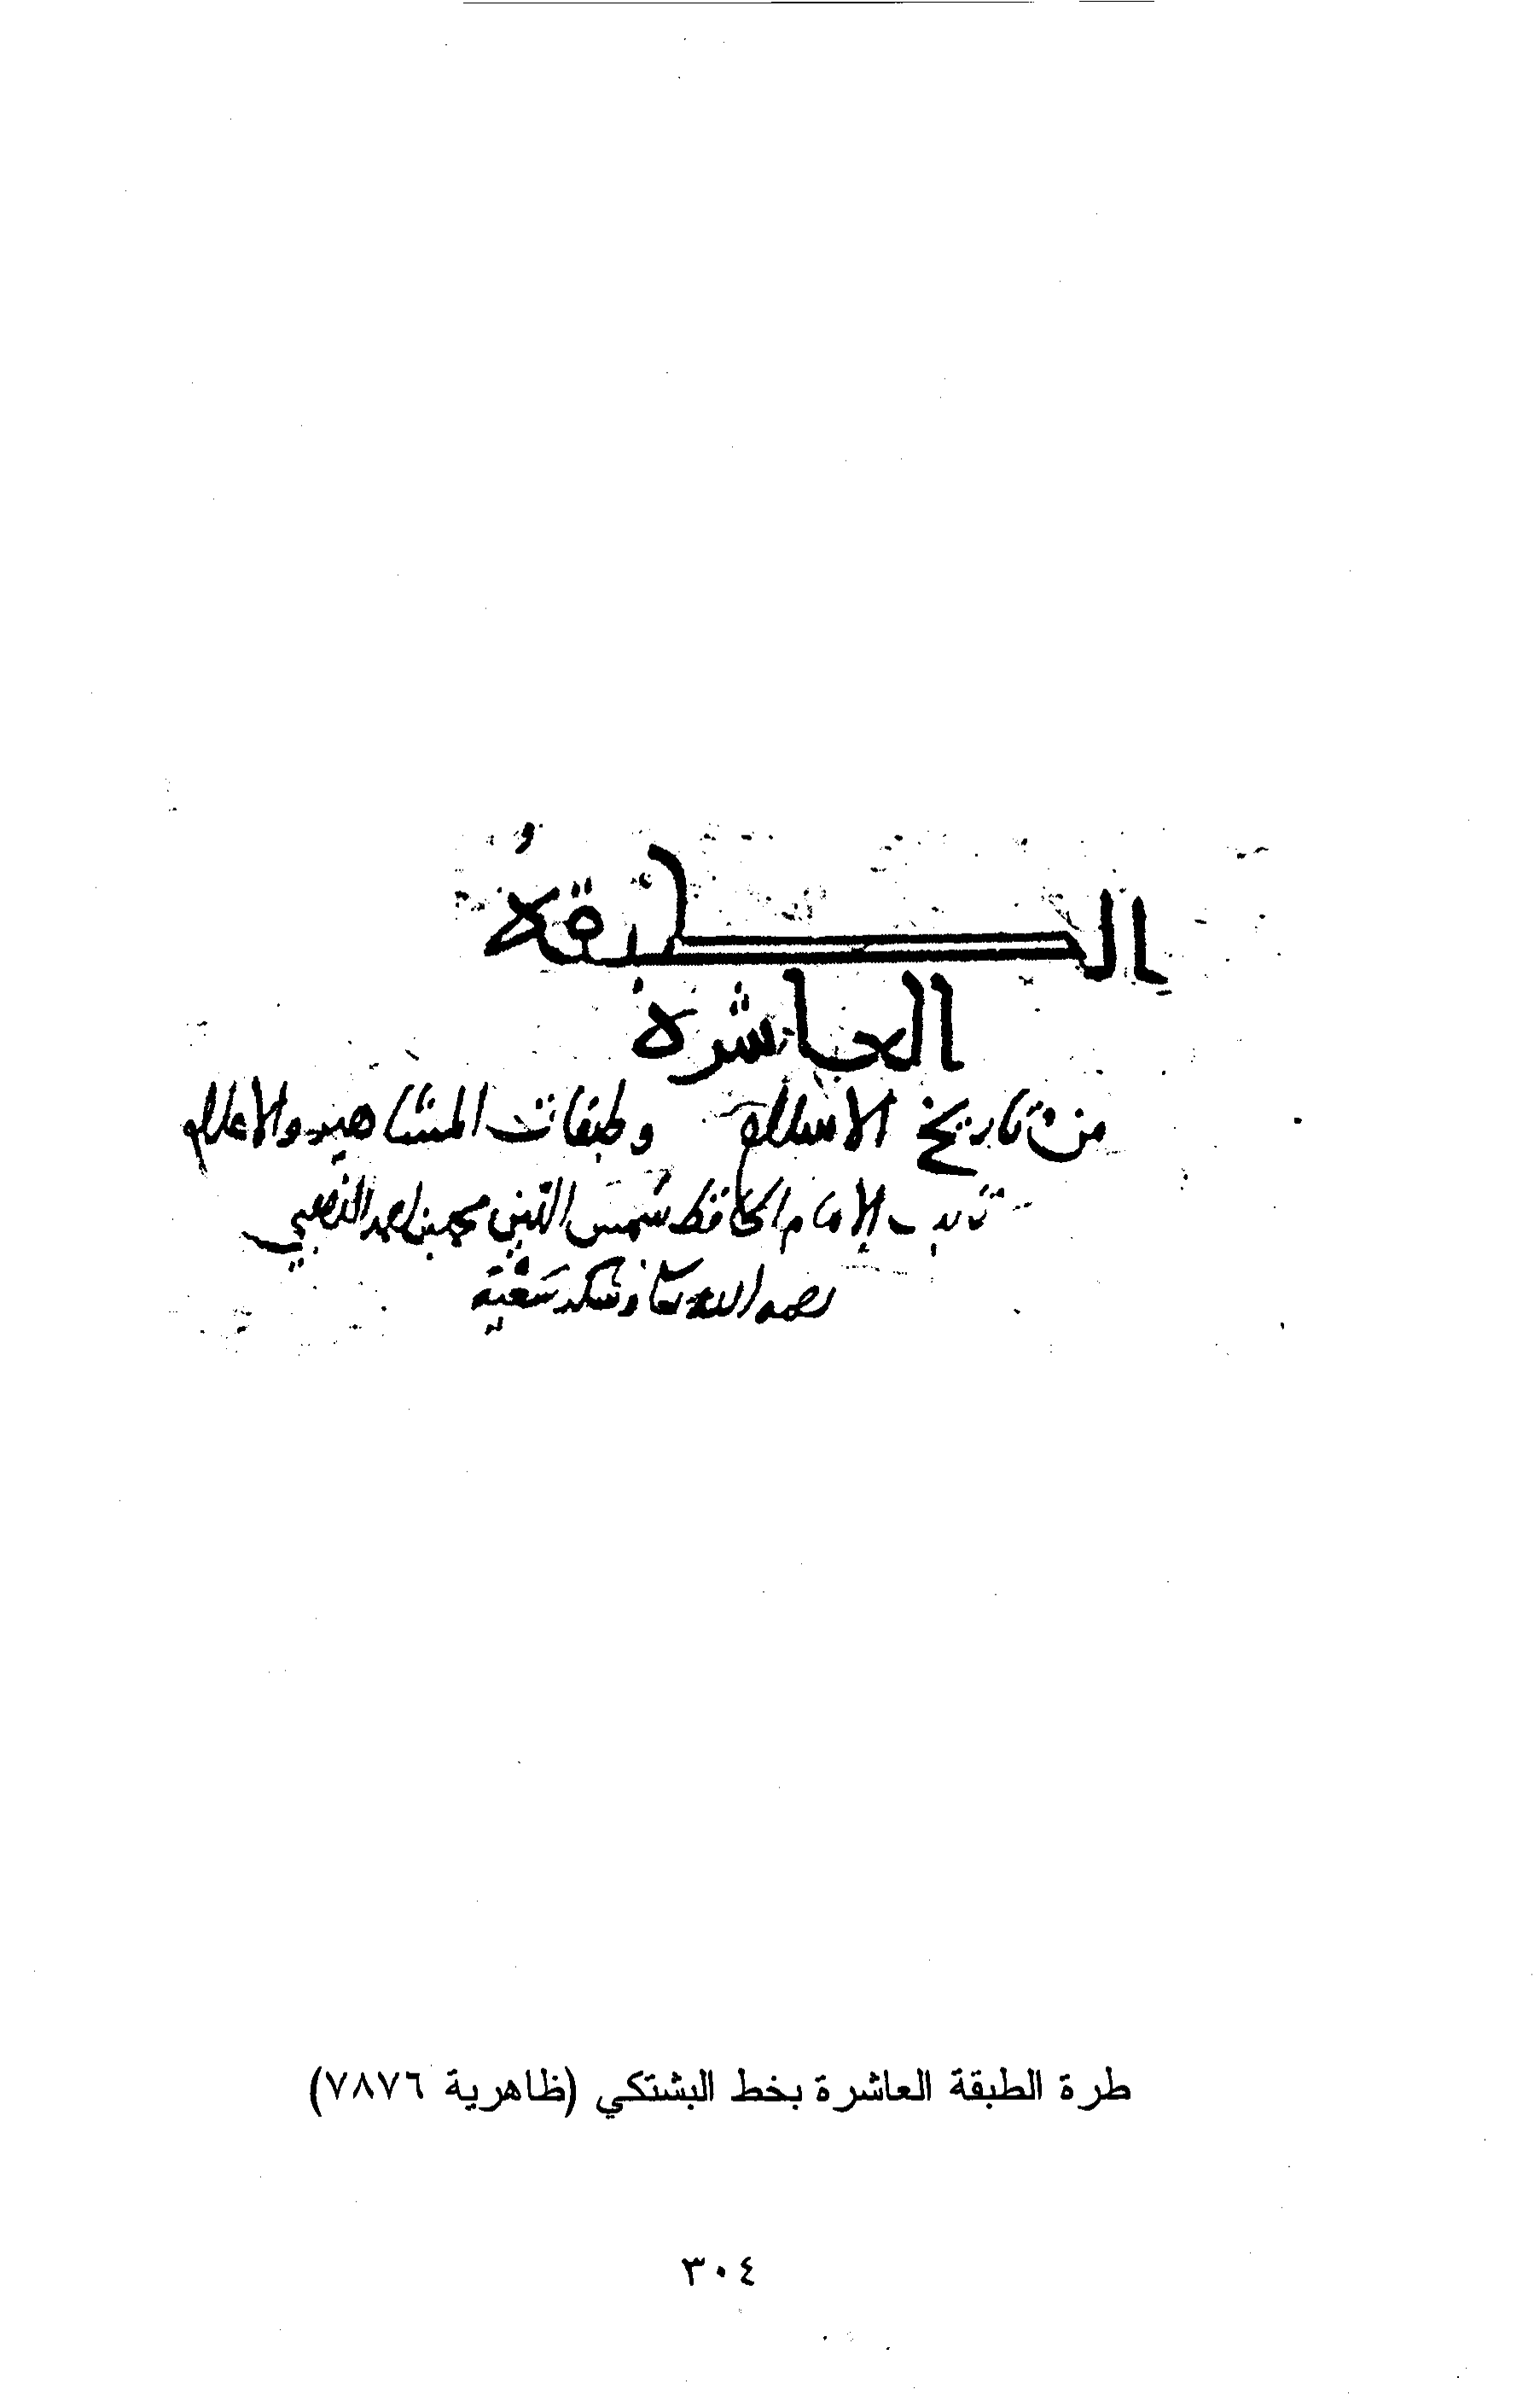 الطبقة
العاشرة
من تاريخ الاسلام وطبقات المشاهير والاعلام
تاليف الإمام الحافظ شمس الدين محمد بن احمد الذهبي
رحمه الله تعالى وشكر سعيه
طرة الطبقة العاشرة بخط البشتكي (ظاهرية ٧٨٧٦)
٣٠٤